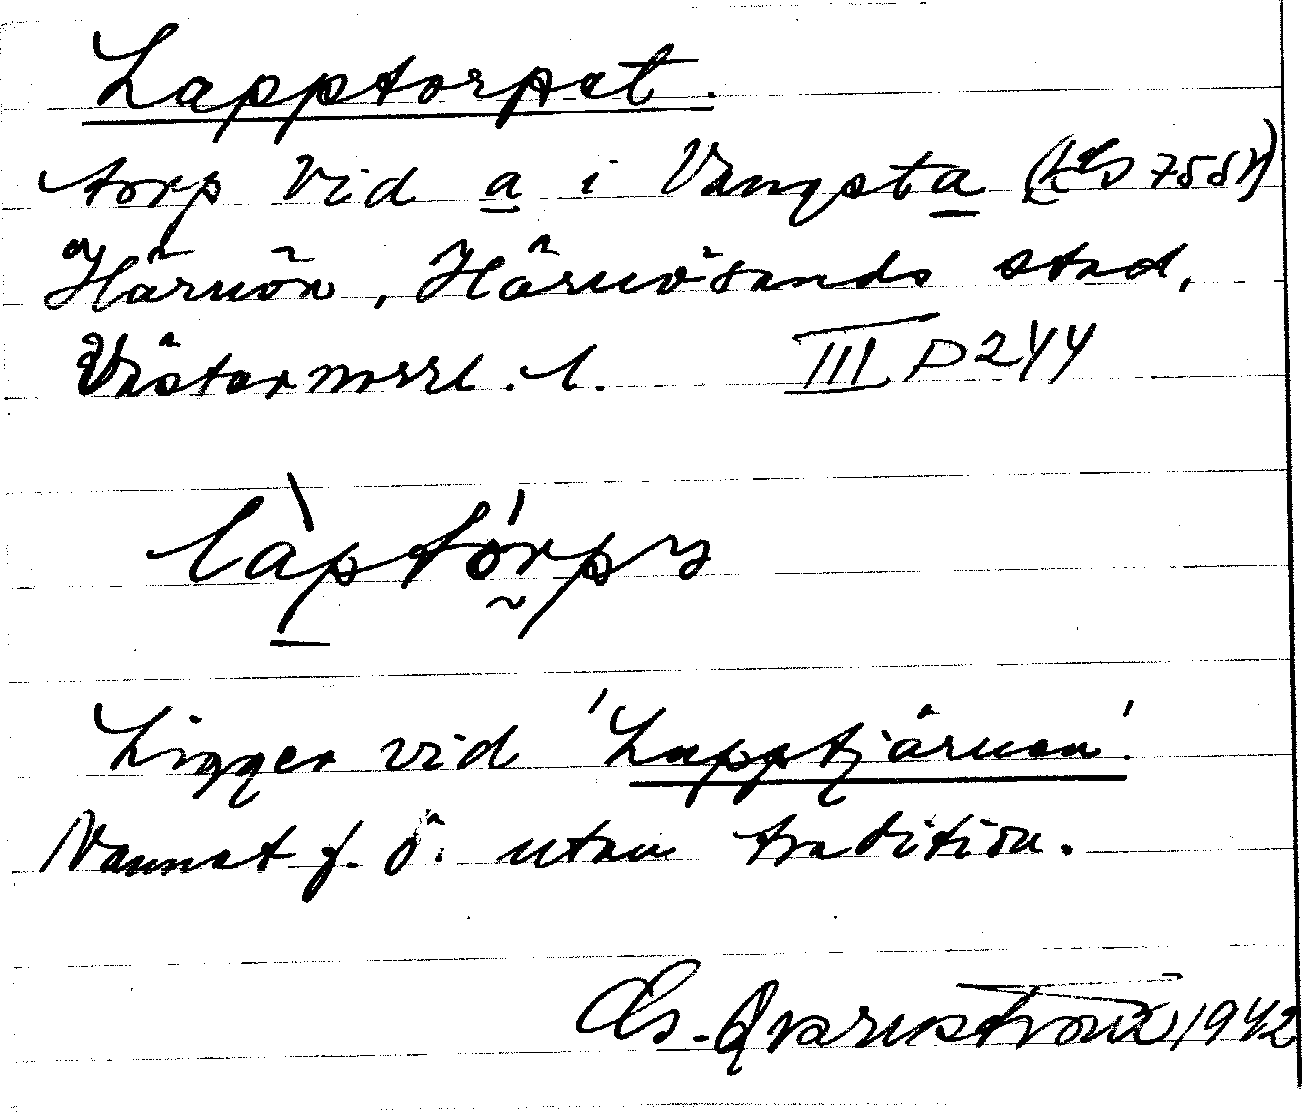 Lapptorpet.
torp vid a i Vangsta
Härnön, Härnösands stad,
Västernorrl. l. III D 244
làptórpə
Ligger vid 'Lapptjärnen'.
Namnet f. ö. utan tradition.
Qvarnström 1942